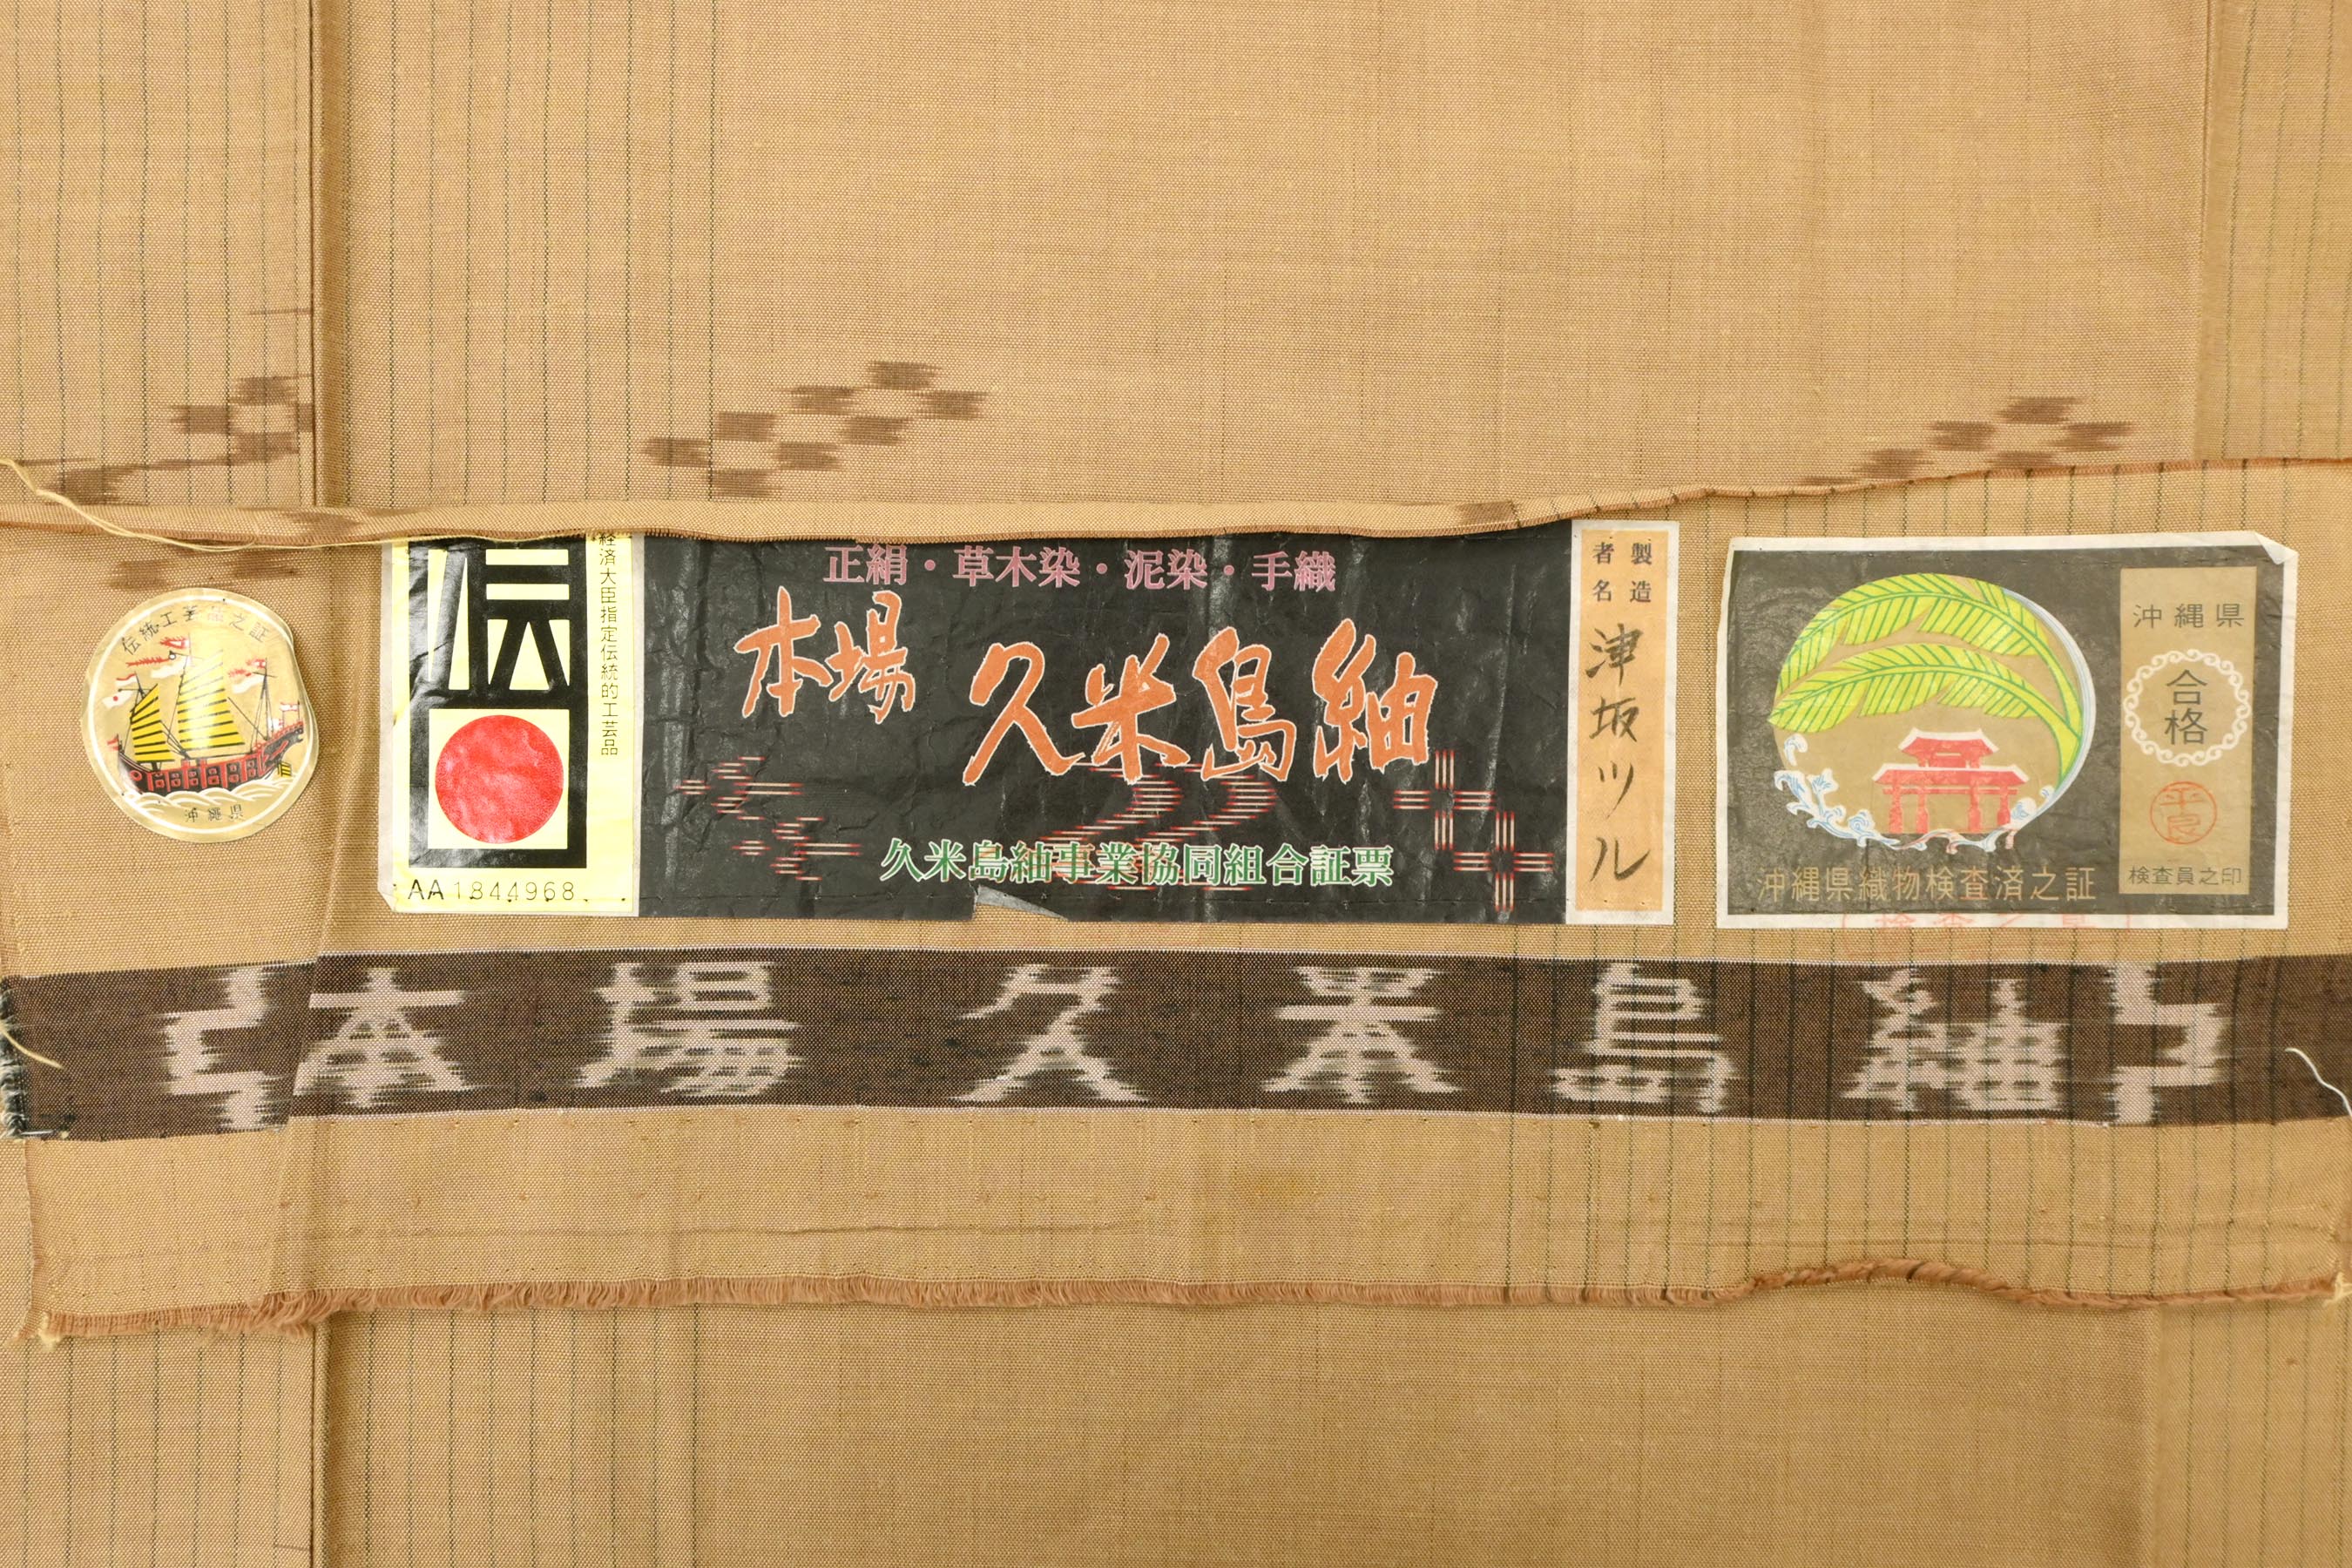 伝統工芸品之証
沖縄県
伝
経済大臣指定伝統的工芸品
AA1844968
正絹・草木染・泥染・手織
本場 久米島紬
久米島紬事業協同組合証票
製造者名
津坂ツル
沖縄県織物検査済之証
沖縄県
合格
平良
検査員之印
本場久米島紬